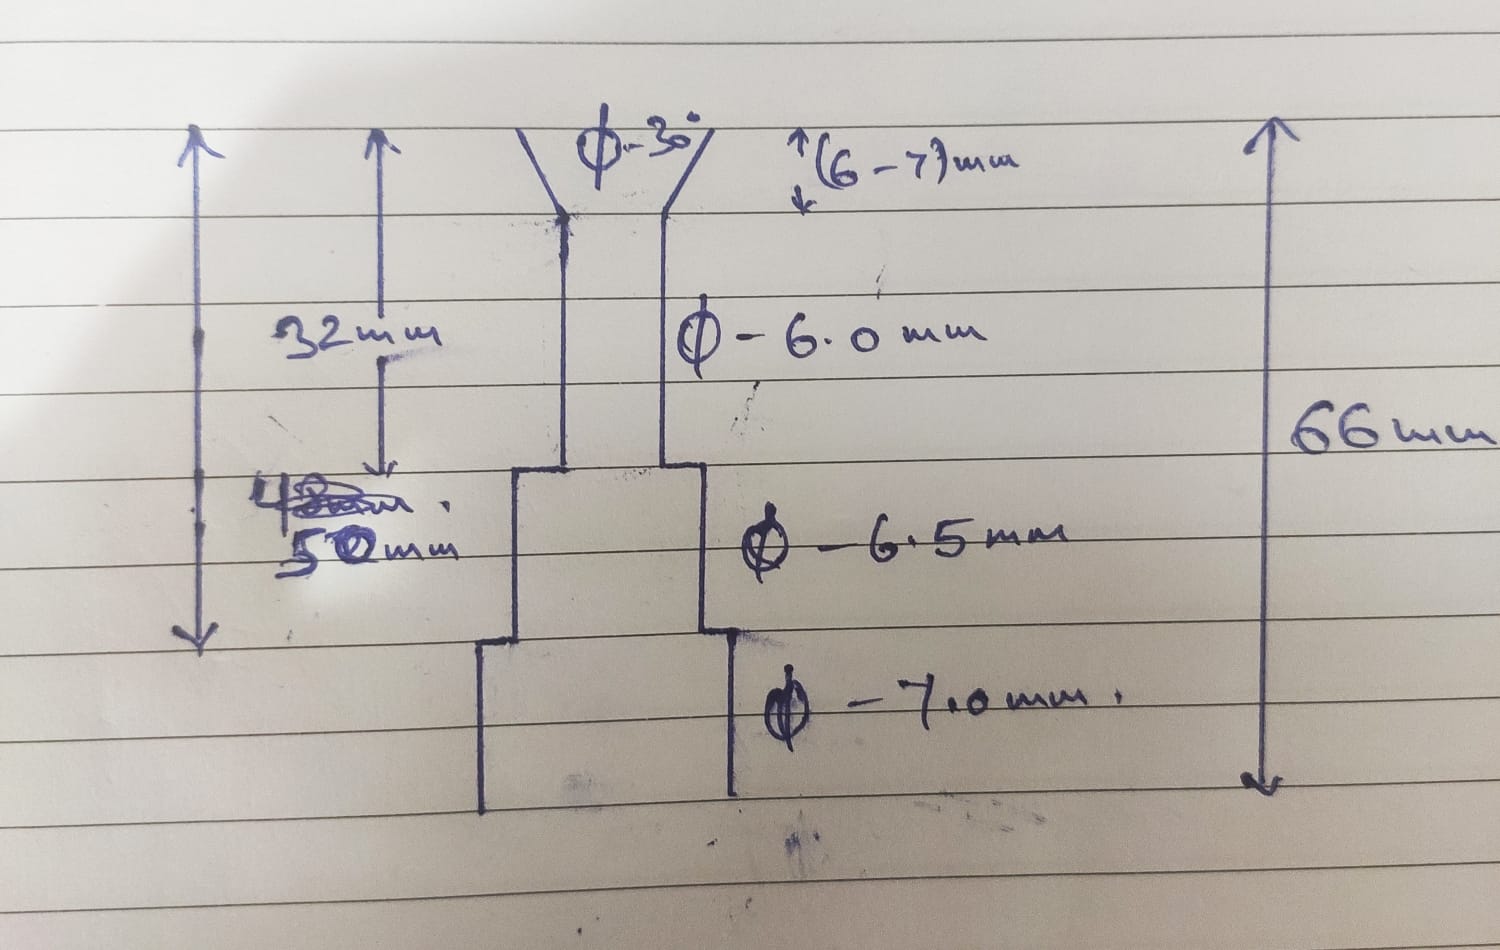 ϕ-30°
(6-7)mm
32mm
ϕ - 6.0 mm
66mm
50mm
ϕ - 6.5mm
ϕ - 7.0mm.